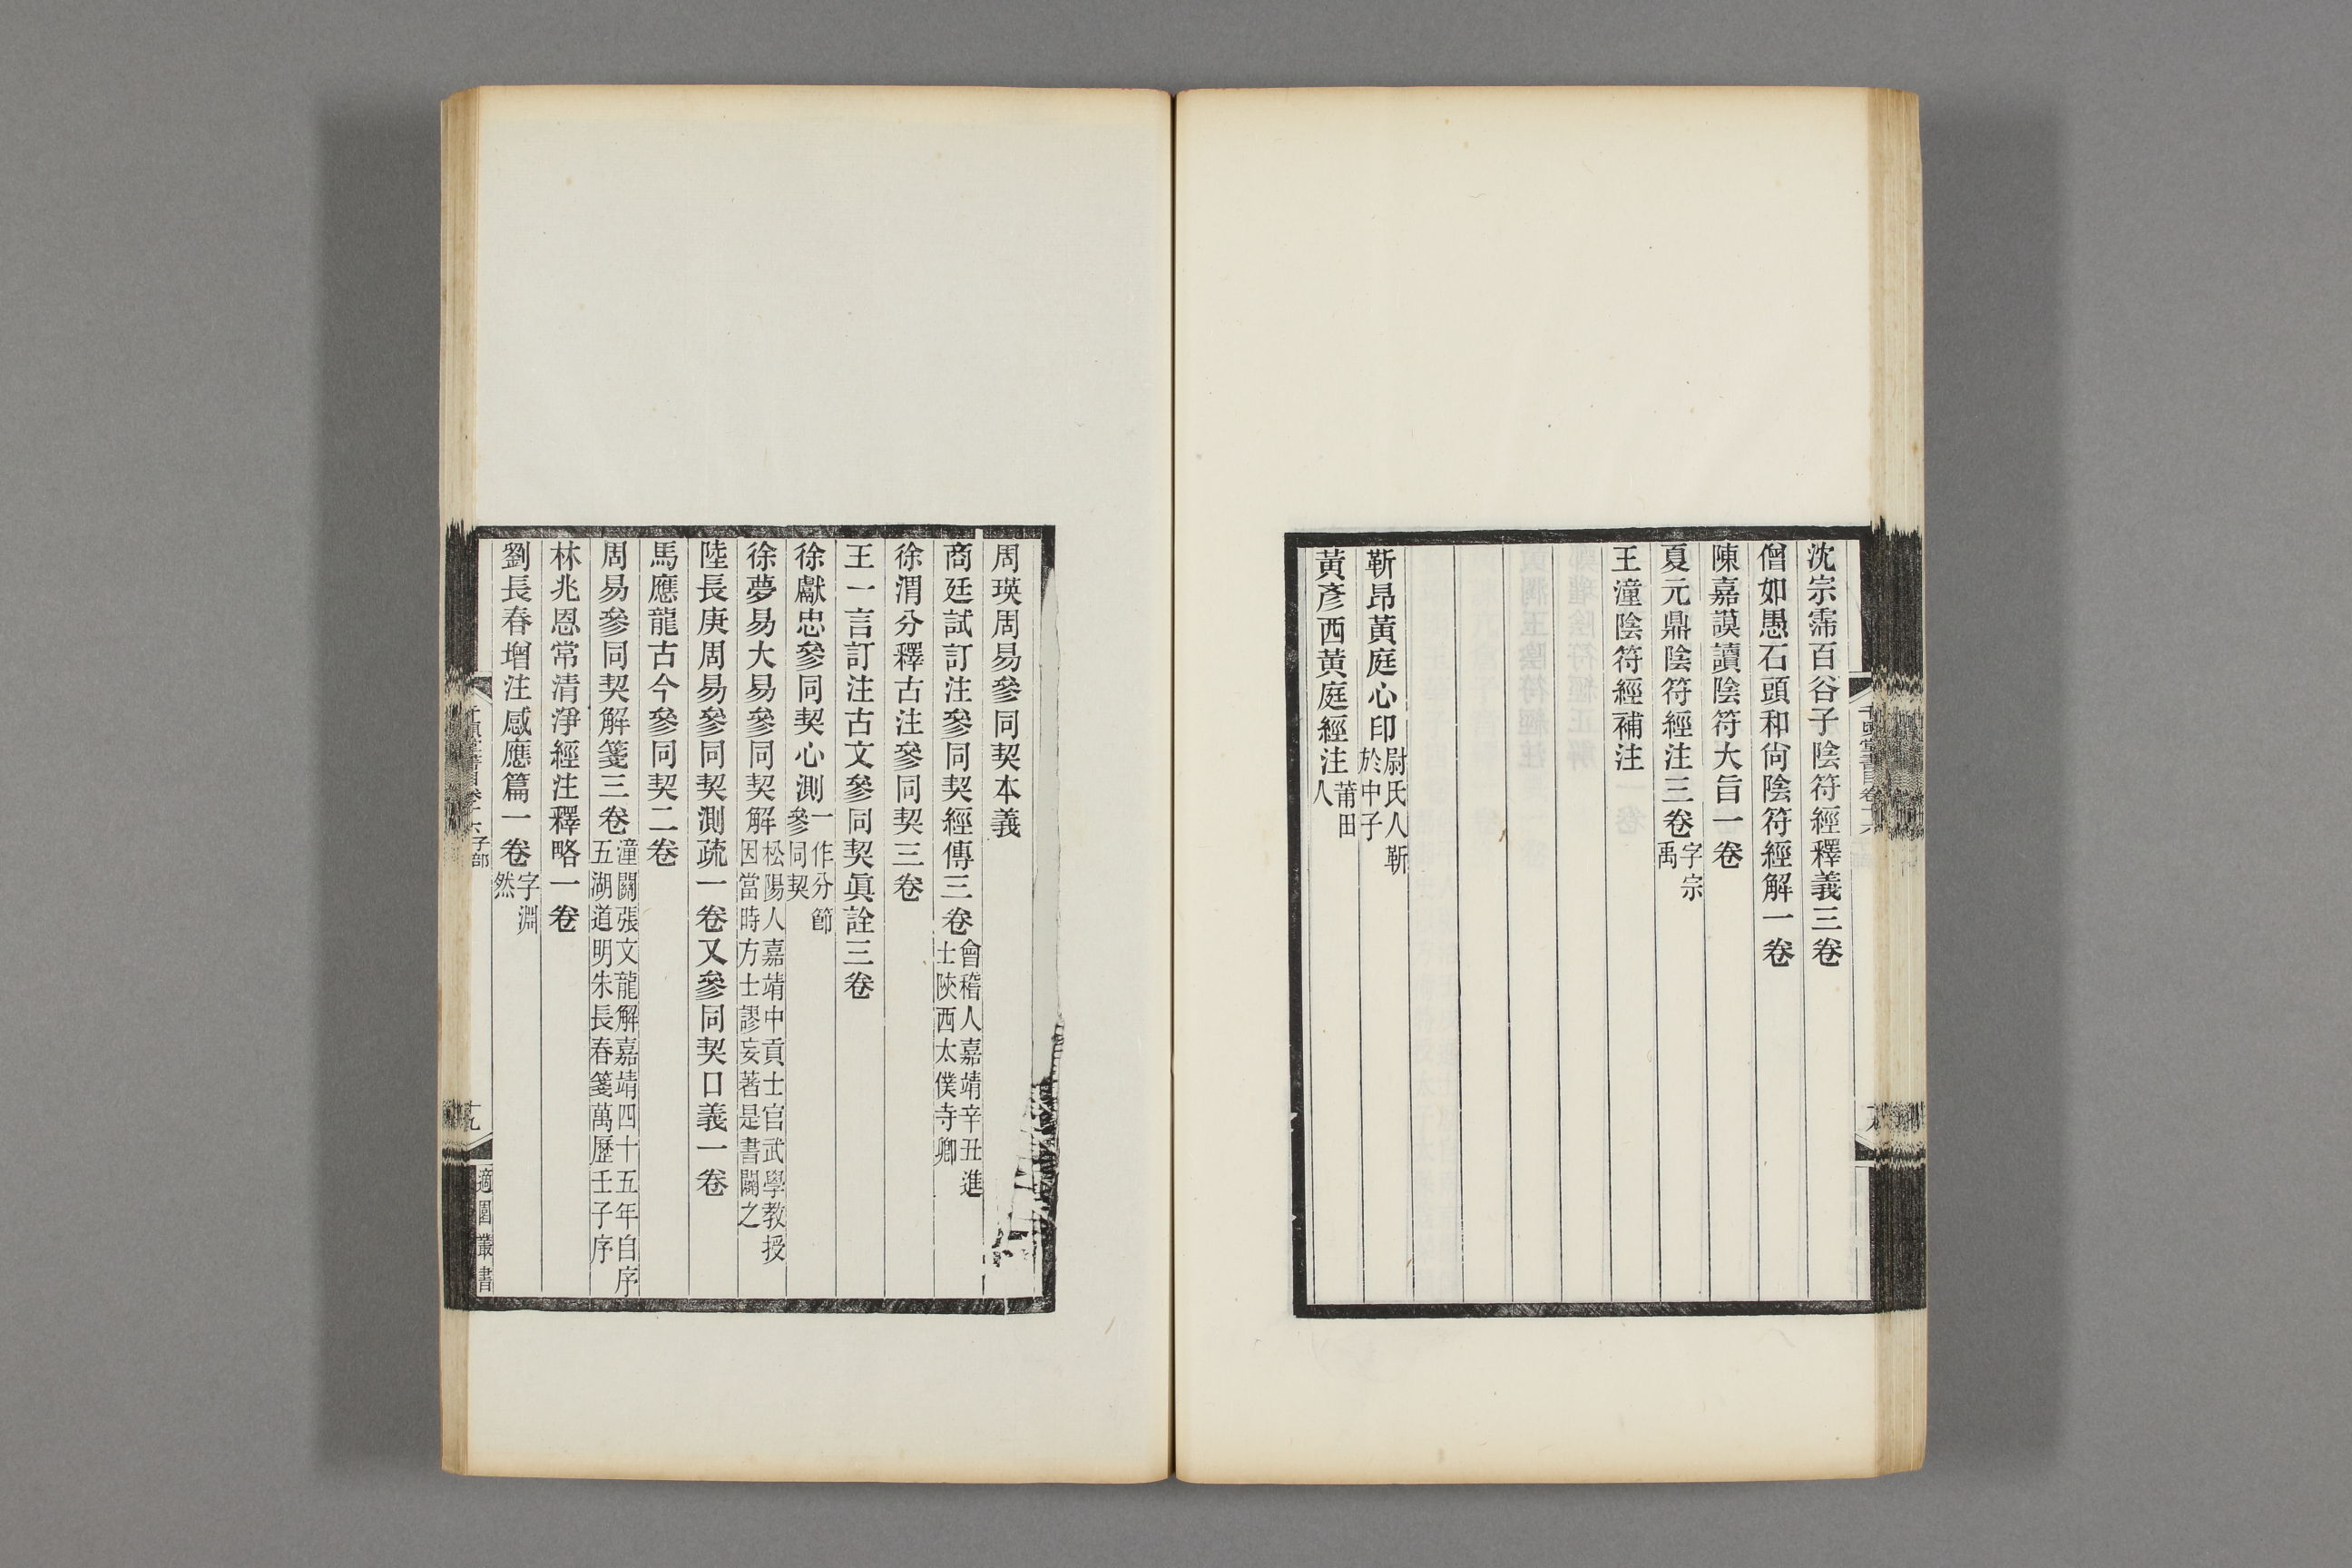 沈宗霈百谷子陰符經釋義三卷
僧如愚石頭和尙陰符經解一卷
陳嘉謨讀陰符大旨一卷
夏元鼎陰符經注三卷字宗禹
王潼陰符經補注
靳昂黃庭心印尉氏人靳於中子
黃彥西黃庭經注莆田人
周瑛周易參同契本義
商廷試訂注參同契經傳三卷會稽人嘉靖辛丑進士陝西太僕寺卿
徐渭分釋古注參同契三卷
王一言訂注古文參同契眞詮三卷
徐獻忠參同契心測一作分節參同契
徐夢易大易參同契解松陽人嘉靖中貢士官武學教授因當時方士謬妄著是書闢之
陸長庚周易參同契測疏一卷又參同契口義一卷
馬應龍古今參同契二卷
周易參同契解箋三卷潼關張文龍解嘉靖四十五年自序五湖道明朱長春箋萬歷壬子序
林兆恩常清淨經注釋略一卷
劉長春增注感應篇一卷字淵然
千頃堂書目卷十六子部
十九
適園叢書